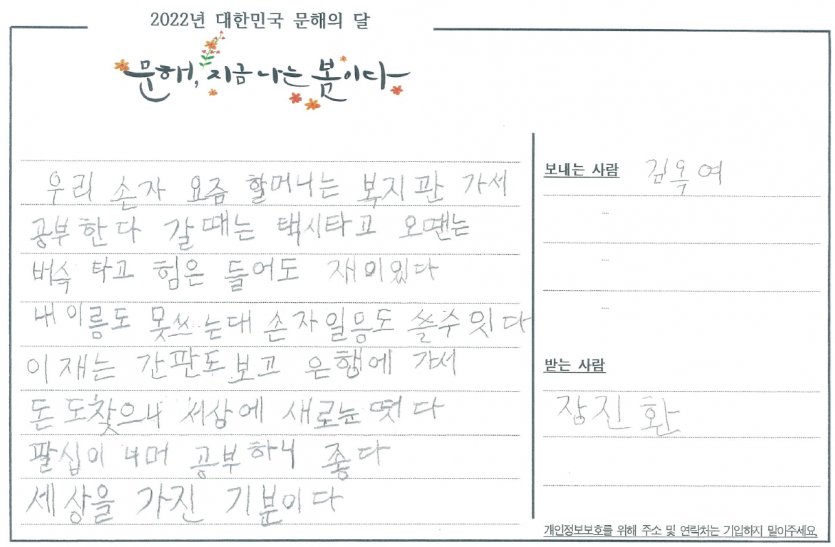 2022년 대한민국 문해의 달
문해, 지금 나는 봄이다
우리 손자 요즘 할머니는 복지관 가서
공부한다 갈때는 택시타고 오땐는
버슥 타고 힘은 들어도 재미있다
내이름도 못쓰는대 손자일응도 쓸수 잇다
이재는 간판도 보고 은행에 가서
돈도찾으니 세상에 새로눈떳다
팔십이 너머 공부하니 좋다
세상을 가진 기분이다
보내는 사람 김옥여
받는 사람
장진환
개인정보보호를 위해 주소 및 연락처는 기입하지 말아주세요.